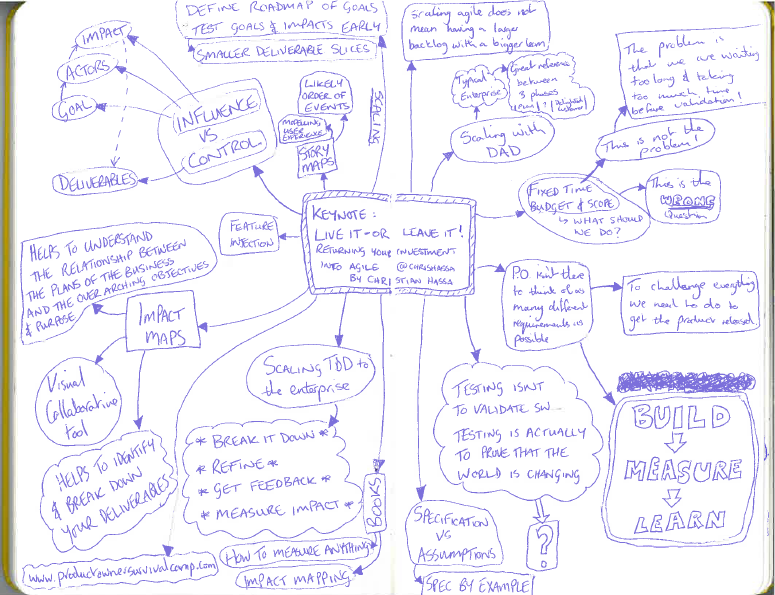 DEFINE ROADMAP OF GOALS
TEST GOALS & IMPACTS EARLY
SMALLER DELIVERABLE SLICES
SCALING
IMPACT
ACTORS
GOAL
DELIVERABLES
INFLUENCE
VS
CONTROL
LIKELY
ORDER OF
EVENTS
MODELLING
USER
EXPERIENCE
STORY
MAPS
FEATURE
INJECTION
KEYNOTE:
LIVE IT - OR LEAVE IT!
RETURNING YOUR INVESTMENT
INTO AGILE @CHRISHASSA
BY CHRISTIAN HASSA
Scaling agile does not
mean having a larger
backlog with a bigger team
Typical
Enterprise
Great reference
between
3 phases
Scaling with
DAD
The problem is
that we are waiting
too long & taking
too much time
before validation!
This is not the
problem!
FIXED TIME
BUDGET & SCOPE
↳ WHAT SHOULD
WE DO?
This is the
WRONG
Question
HELPS TO UNDERSTAND
THE RELATIONSHIP BETWEEN
THE PLANS OF THE BUSINESS
AND THE OVER ARCHING OBJECTIVES
& PURPOSE
IMPACT
MAPS
Visual
Collaborative
tool
HELPS TO IDENTIFY
& BREAK DOWN
YOUR DELIVERABLES
www.productownersurvivalcamp.com
SCALING TDD to
the enterprise
* BREAK IT DOWN *
* REFINE *
* GET FEEDBACK *
* MEASURE IMPACT *
BOOKS
HOW TO MEASURE ANYTHING
IMPACT MAPPING
P.O isn't there
to think of as
many different
requirements as
possible
To challenge everything
we need to do to
get the product released.
TESTING ISNT
TO VALIDATE SW...
TESTING IS ACTUALLY
TO PROVE THAT THE
WORLD IS CHANGING
?
SPECIFICATION
VS
ASSUMPTIONS
SPEC BY EXAMPLE
BUILD
MEASURE
LEARN